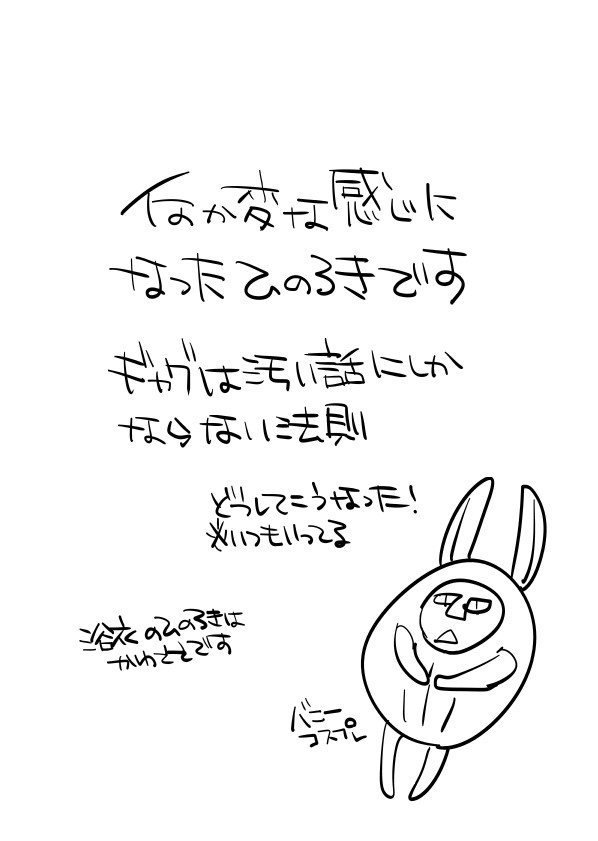 何か変な感じに
なったひのろきです
ギャグは汚い話にしか
ならない法則
どうしてこうなった!
※いつもいってる
浴衣のひのろきは
かわさとです
バニー
コスプレ